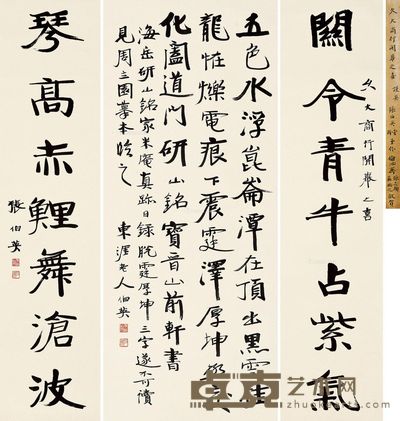 關令青牛占紫氣
久大商行開幕之喜
五色水浮崑崙潭在頂出黑雲挂
龍怪爍電痕下震霆澤厚坤極變
化闔道門研山銘寶晉山前軒書
海岳研山銘家米庵真跡日錄脫霆厚坤三字遂不可讀
見周三國摹本臨之 東涯老人伯英
琴高赤鯉舞滄波
張伯英